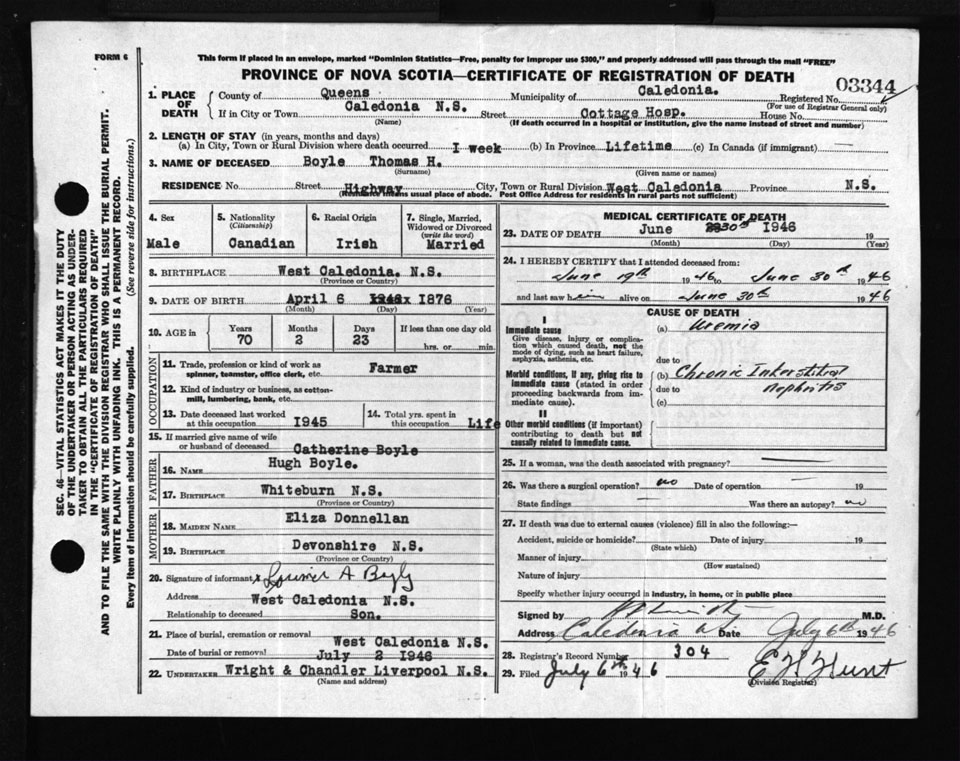 FORM 6
This form if placed in an envelope, marked "Dominion Statistics—Free, penalty for improper use $300," and properly addressed will pass through the mail "FREE"
PROVINCE OF NOVA SCOTIA—CERTIFICATE OF REGISTRATION OF DEATH
03344
1. PLACE OF DEATH
County of Queens Municipality of Caledonia. Registered No.
(For use of Registrar General only)
If in City or Town Caledonia N.S. Street Cottage Hosp. House No.
(Name) (If death occurred in a hospital or institution, give the name instead of street and number)
2. LENGTH OF STAY (in years, months and days)
(a) In City, Town or Rural Division where death occurred I week (b) In Province Lifetime (c) In Canada (if immigrant) —
3. NAME OF DECEASED Boyle Thomas H.
(Surname) (Given name or names)
RESIDENCE No. Street Highway City, Town or Rural Division West Caledonia Province N.S.
(Residence means usual place of abode. Post Office Address for residents in rural parts not sufficient)
4. Sex
Male
5. Nationality
(Citizenship)
Canadian
6. Racial Origin
Irish
7. Single, Married, Widowed or Divorced
(write the word)
Married
8. BIRTHPLACE West Caledonia. N.S.
(Province or Country)
9. DATE OF BIRTH April 6 1876
(Month) (Day) (Year)
10. AGE in
Years Months Days If less than one day old
70 2 23 hrs. or min.
OCCUPATION
11. Trade, profession or kind of work as spinner, teamster, office clerk, etc. Farmer
12. Kind of industry or business, as cotton-mill, lumbering, bank, etc.
13. Date deceased last worked at this occupation I945
14. Total yrs. spent in this occupation Life
15. If married give name of wife or husband of deceased Catherine Boyle
FATHER
16. NAME Hugh Boyle.
17. BIRTHPLACE Whiteburn N.S.
(Province or Country)
MOTHER
18. MAIDEN NAME Eliza Donnellan
19. BIRTHPLACE Devonshire N.S.
(Province or Country)
20. Signature of informant A
Address West Caledonia N.S.
Relationship to deceased Son.
21. Place of burial, cremation or removal West Caledonia N.S.
Date of burial or removal July 2 I946
22. UNDERTAKER Wright & Chandler Liverpool N.S.
(Name and address)
MEDICAL CERTIFICATE OF DEATH
23. DATE OF DEATH June 30th I946 19
(Month) (Day) (Year)
24. I HEREBY CERTIFY that I attended deceased from:
June 19th 1946 to June 30th 1946
and last saw him alive on June 30th 1946
CAUSE OF DEATH
I
Immediate cause
Give disease, injury or complication which caused death, not the mode of dying, such as heart failure, asphyxia, asthenia, etc.
(a) Uremia
due to
Morbid conditions, if any, giving rise to immediate cause (stated in order proceeding backwards from immediate cause).
(b) Chronic Interstitial
due to nephritis
(c)
II
Other morbid conditions (if important) contributing to death but not causally related to immediate cause.
25. If a woman, was the death associated with pregnancy? —
26. Was there a surgical operation? no Date of operation — 19
State findings — Was there an autopsy? no
27. If death was due to external causes (violence) fill in also the following:—
Accident, suicide or homicide? Date of injury 19
(State which)
Manner of injury
(How sustained)
Nature of injury
Specify whether injury occurred in industry, in home, or in public place
Signed by M.D.
Address Caledonia Date July 6th 1946
28. Registrar's Record Number 304
29. Filed July 6th 1946 E H Hunt
(Division Registrar)
SEC. 46—VITAL STATISTICS ACT MAKES IT THE DUTY
OF THE UNDERTAKER OR PERSON ACTING AS UNDER-
TAKER TO OBTAIN ALL THE PARTICULARS REQUIRED
IN THE "CERTIFICATE OF REGISTRATION OF DEATH"
AND TO FILE THE SAME WITH THE DIVISION REGISTRAR WHO SHALL ISSUE THE BURIAL PERMIT.
WRITE PLAINLY WITH UNFADING INK. THIS IS A PERMANENT RECORD.
Every item of information should be carefully supplied. (See reverse side for instructions.)